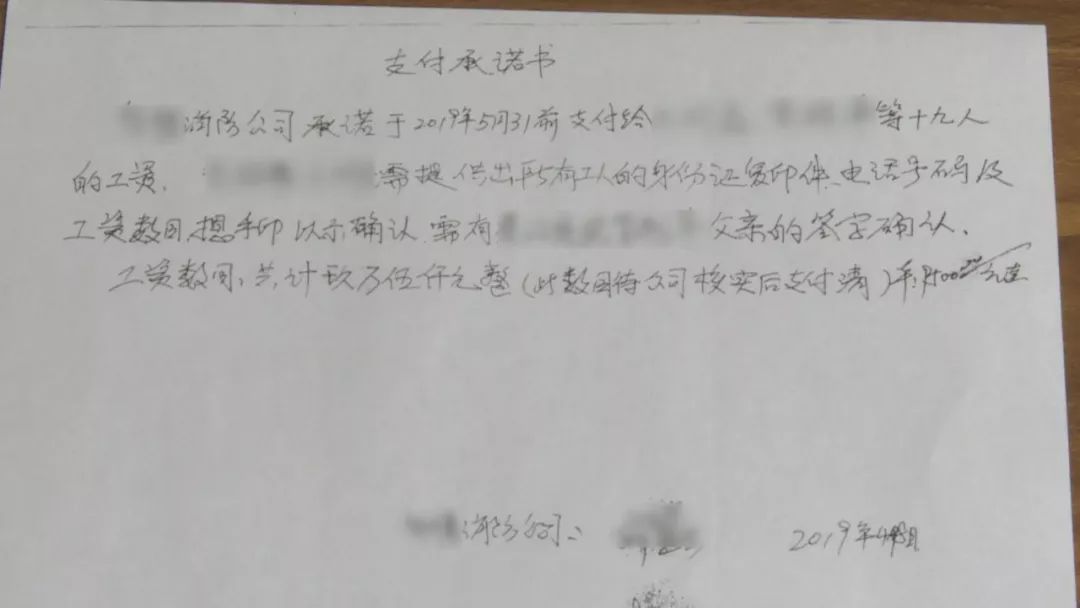 支付承诺书
消防公司承诺于2019年5月31前支付给 等十九人
的工资、 需提供出所有工人的身份证复印件、电话号码及
工资数目、摁手印以示确认、需有 父亲的签字确认、
工资数目:共计玖万伍仟元整(此数目待公司核实后支付清)
消防公司: 2019年4月